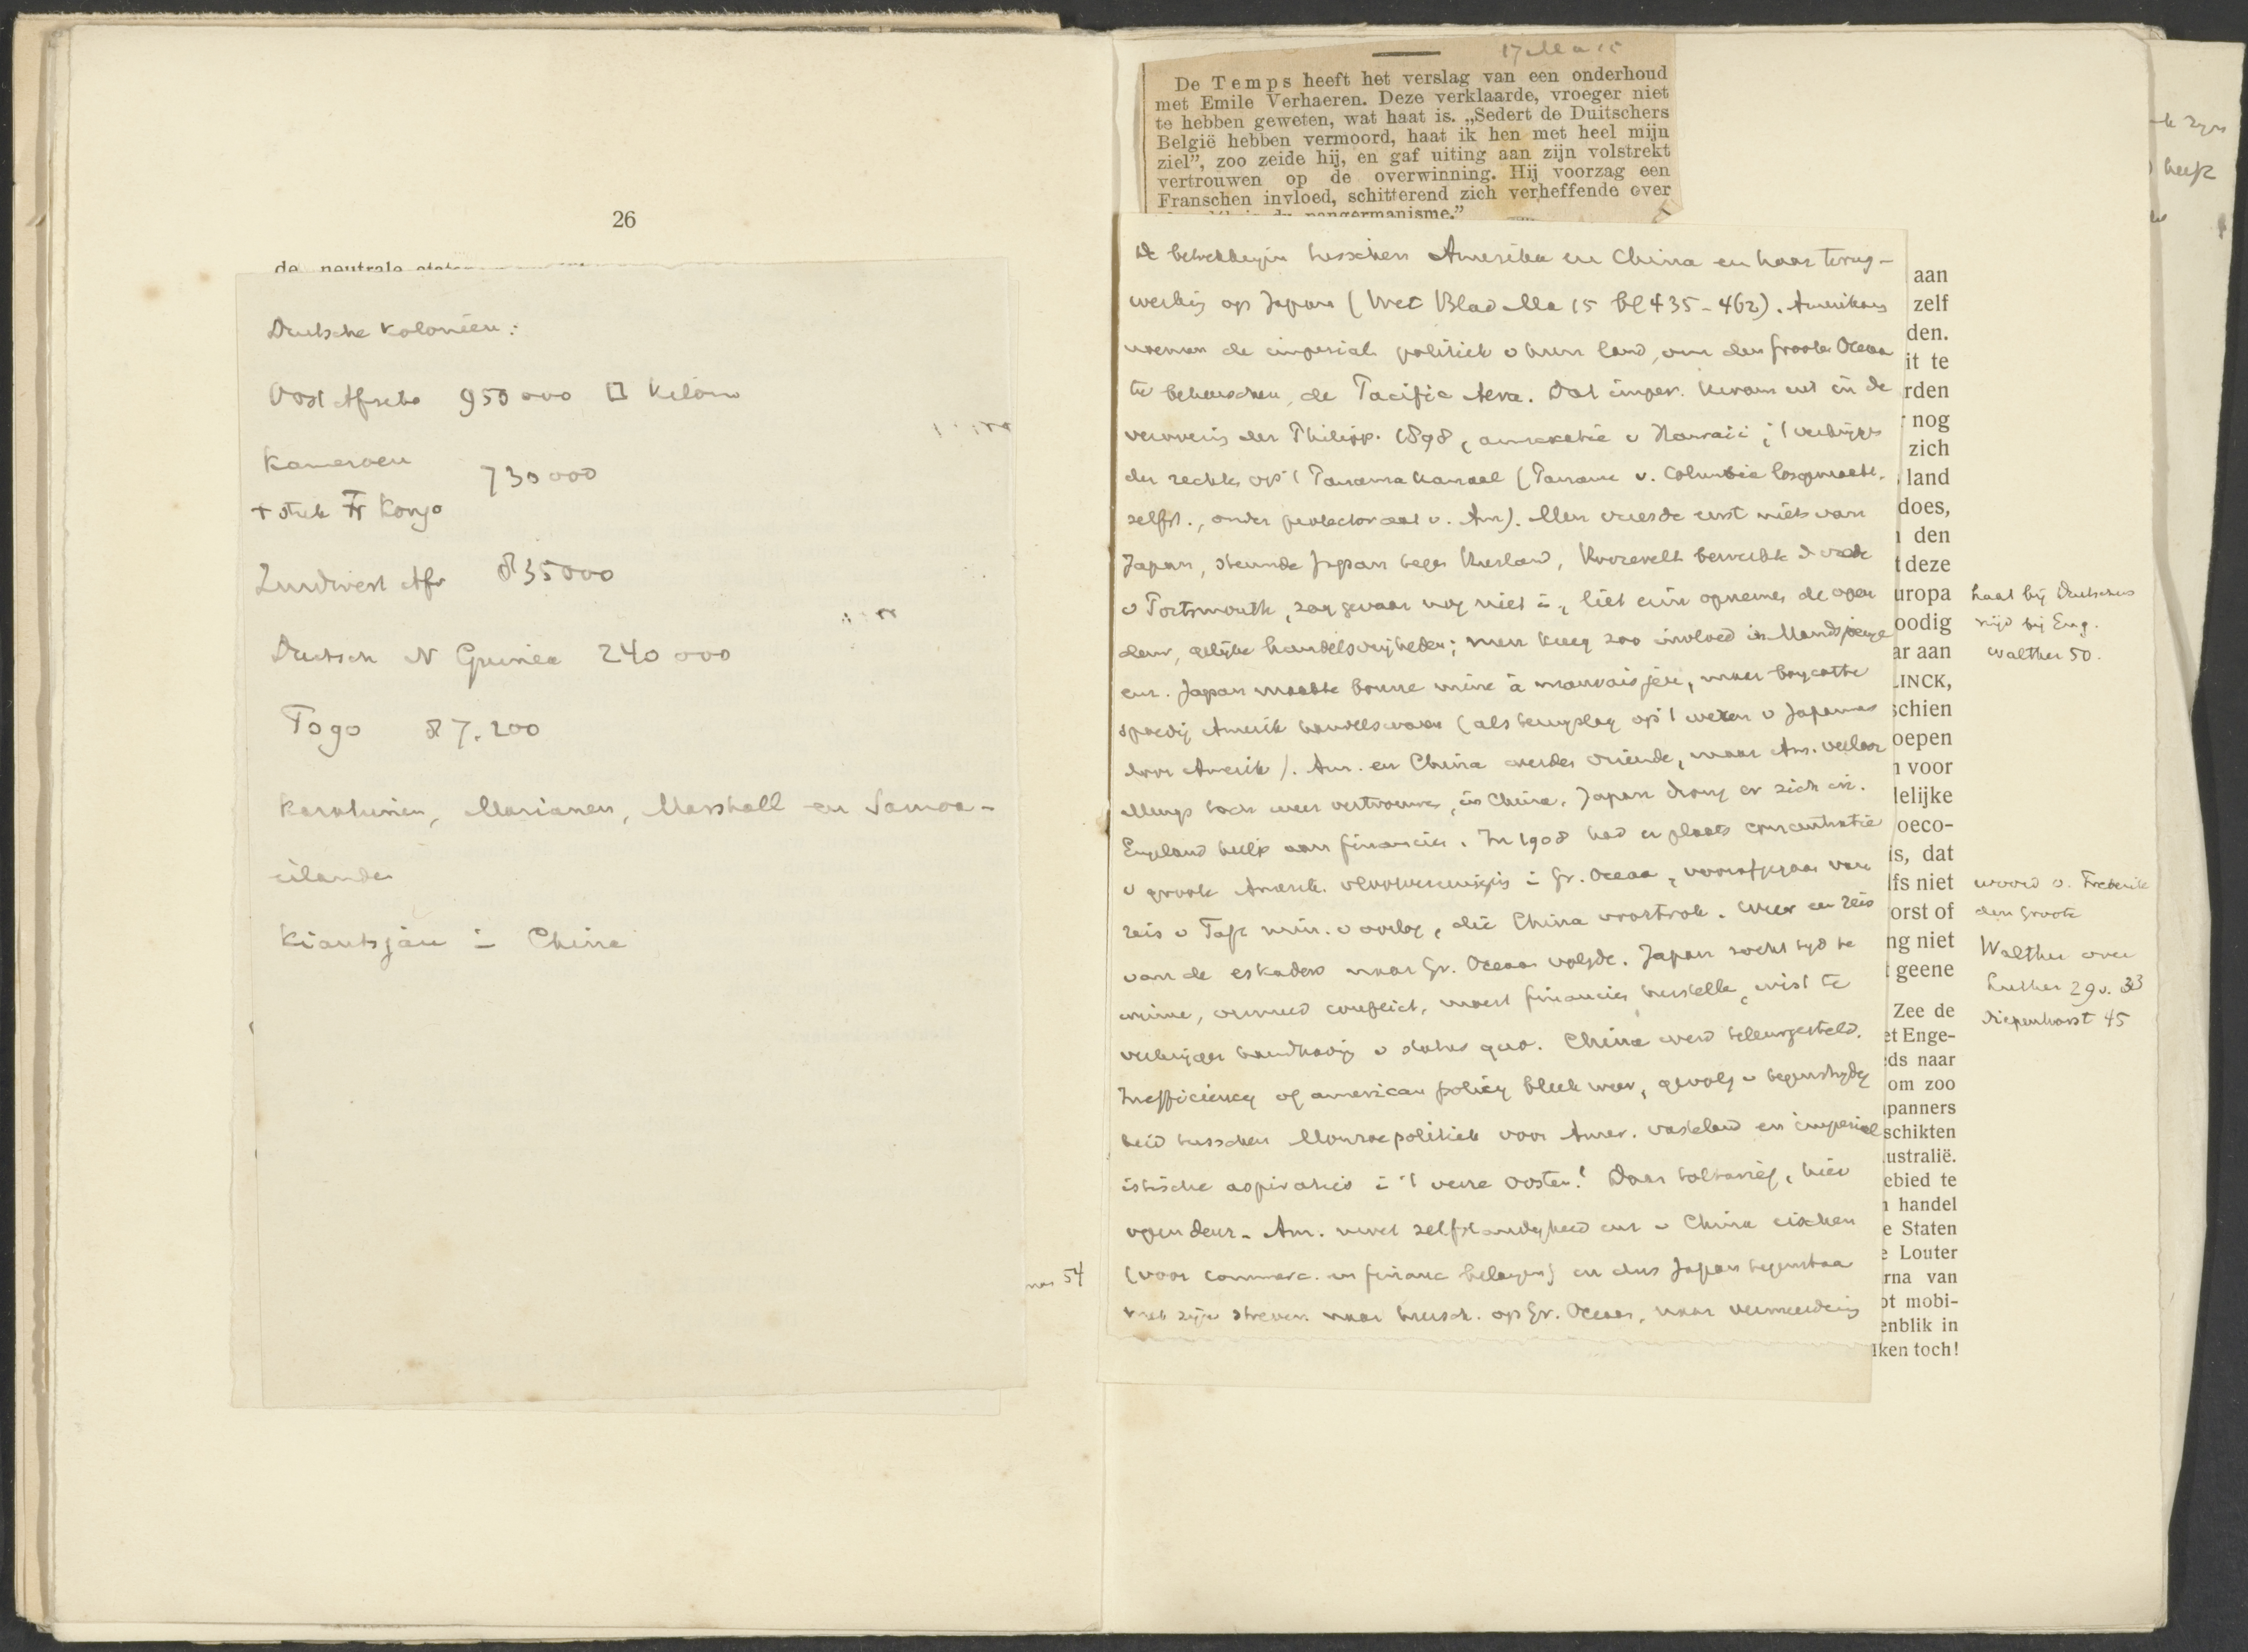 26
de neutrale
Duitsche Koloniën:
Oost Afrika 950 000 □ Kilom
Kameroen
730 000
+ stuk Fr Kongo
Zuidwest Afr 835000
Duitsch N Guinea 240 000
Togo 87.200
Karolinen, Marianen, Marshall en Samoa-
eilanden
Kiautsjau i China
54
17 Ma 15
De Temps heeft het verslag van een onderhoud
met Emile Verhaeren. Deze verklaarde, vroeger niet
te hebben geweten, wat haat is. „Sedert de Duitschers
België hebben vermoord, haat ik hen met heel mijn
ziel”, zoo zeide hij, en gaf uiting aan zijn volstrekt
vertrouwen op de overwinning. Hij voorzag een
Franschen invloed, schitterend zich verheffende over
pangermanisme.”
De betrekkingen tusschen Amerika en China en haar terug-
werking op Japan (Wet Blad Ma 15 bl 435-462). Amerikans
noemen de imperial. politiek v hun land, om den Grooten Oceaan
te beheerschen, de Pacific Aera. Dat imper. kwam uit in de
verovering der Philipp. 1898, annexatie v Hawaii, 't verkrijgen
der rechten op 't Panama Kanaal (Panama v. Columbia losgemaakt.
zelfst., onder protectoraat v. Am). Men vreesde eerst niets van
Japan, steunde Japan tegen Rusland, Roosevelt bewerkte d vrede
v Portsmouth, zag gevaar nog niet in, liet erin opnemen de open
deur, gelijke handelsvrijheden; men kreeg zoo invloed in Mandsjoerije
enz. Japan maakte bonne mine à mauvais jeu, maar boycotte
spoedig Amerik handelswaren (als terugslag op 't weren v Japanners
door Amerik). Am. en China werden vriende, maar Am. verloor
allengs toch weer vertrouwen, in China. Japan drong er zich in.
Engeland hielp aan financien. In 1908 had er plaats concentratie
v groote Amerik. vlootvereenigin i Gr. Oceaan, voorafgegaan van
reis v Taft min. v oorlog, die China voortrok. Weer een reis
van de eskaders naar Gr. Oceaan volgde. Japan zocht tijd te
winne, vermeed conflict, moest financien herstelle, wist te
verkrijgen handhaving v status quo. China werd teleurgesteld.
Inefficiency of american policy bleek weer, gevolg v tegenstrijdig
heid tusschen Monroepolitiek voor Amer. vasteland en imperial
istische aspiraties i 't verre Oosten! Daar toltarief, hier
open deur. Am. moet zelfstandigheid enz v China eischen
(voor commerc. en financ belangen) en dus Japan tegenstaan
met zijn streven naar heersch. op Gr. Oceaan, naar vermeerdering
aan
zelf
den.
it te
rden
nog
zich
land
does,
den
deze
uropa
oodig
ar aan
LINCK,
schien
oepen
voor
lelijke
oeco-
is, dat
lfs niet
orst of
ng niet
geene
Zee de
et Enge-
ds naar
om zoo
panners
schikten
ustralië.
ebied te
handel
e Staten
e Louter
rna van
ot mobi-
enblik in
lken toch!
haat bij Duitschers
nijd bij Eng.
Walther 50.
woord v. Frederik
den Groote
Walther over
Luther 29 v. 33
Diepenhorst 45
heeft